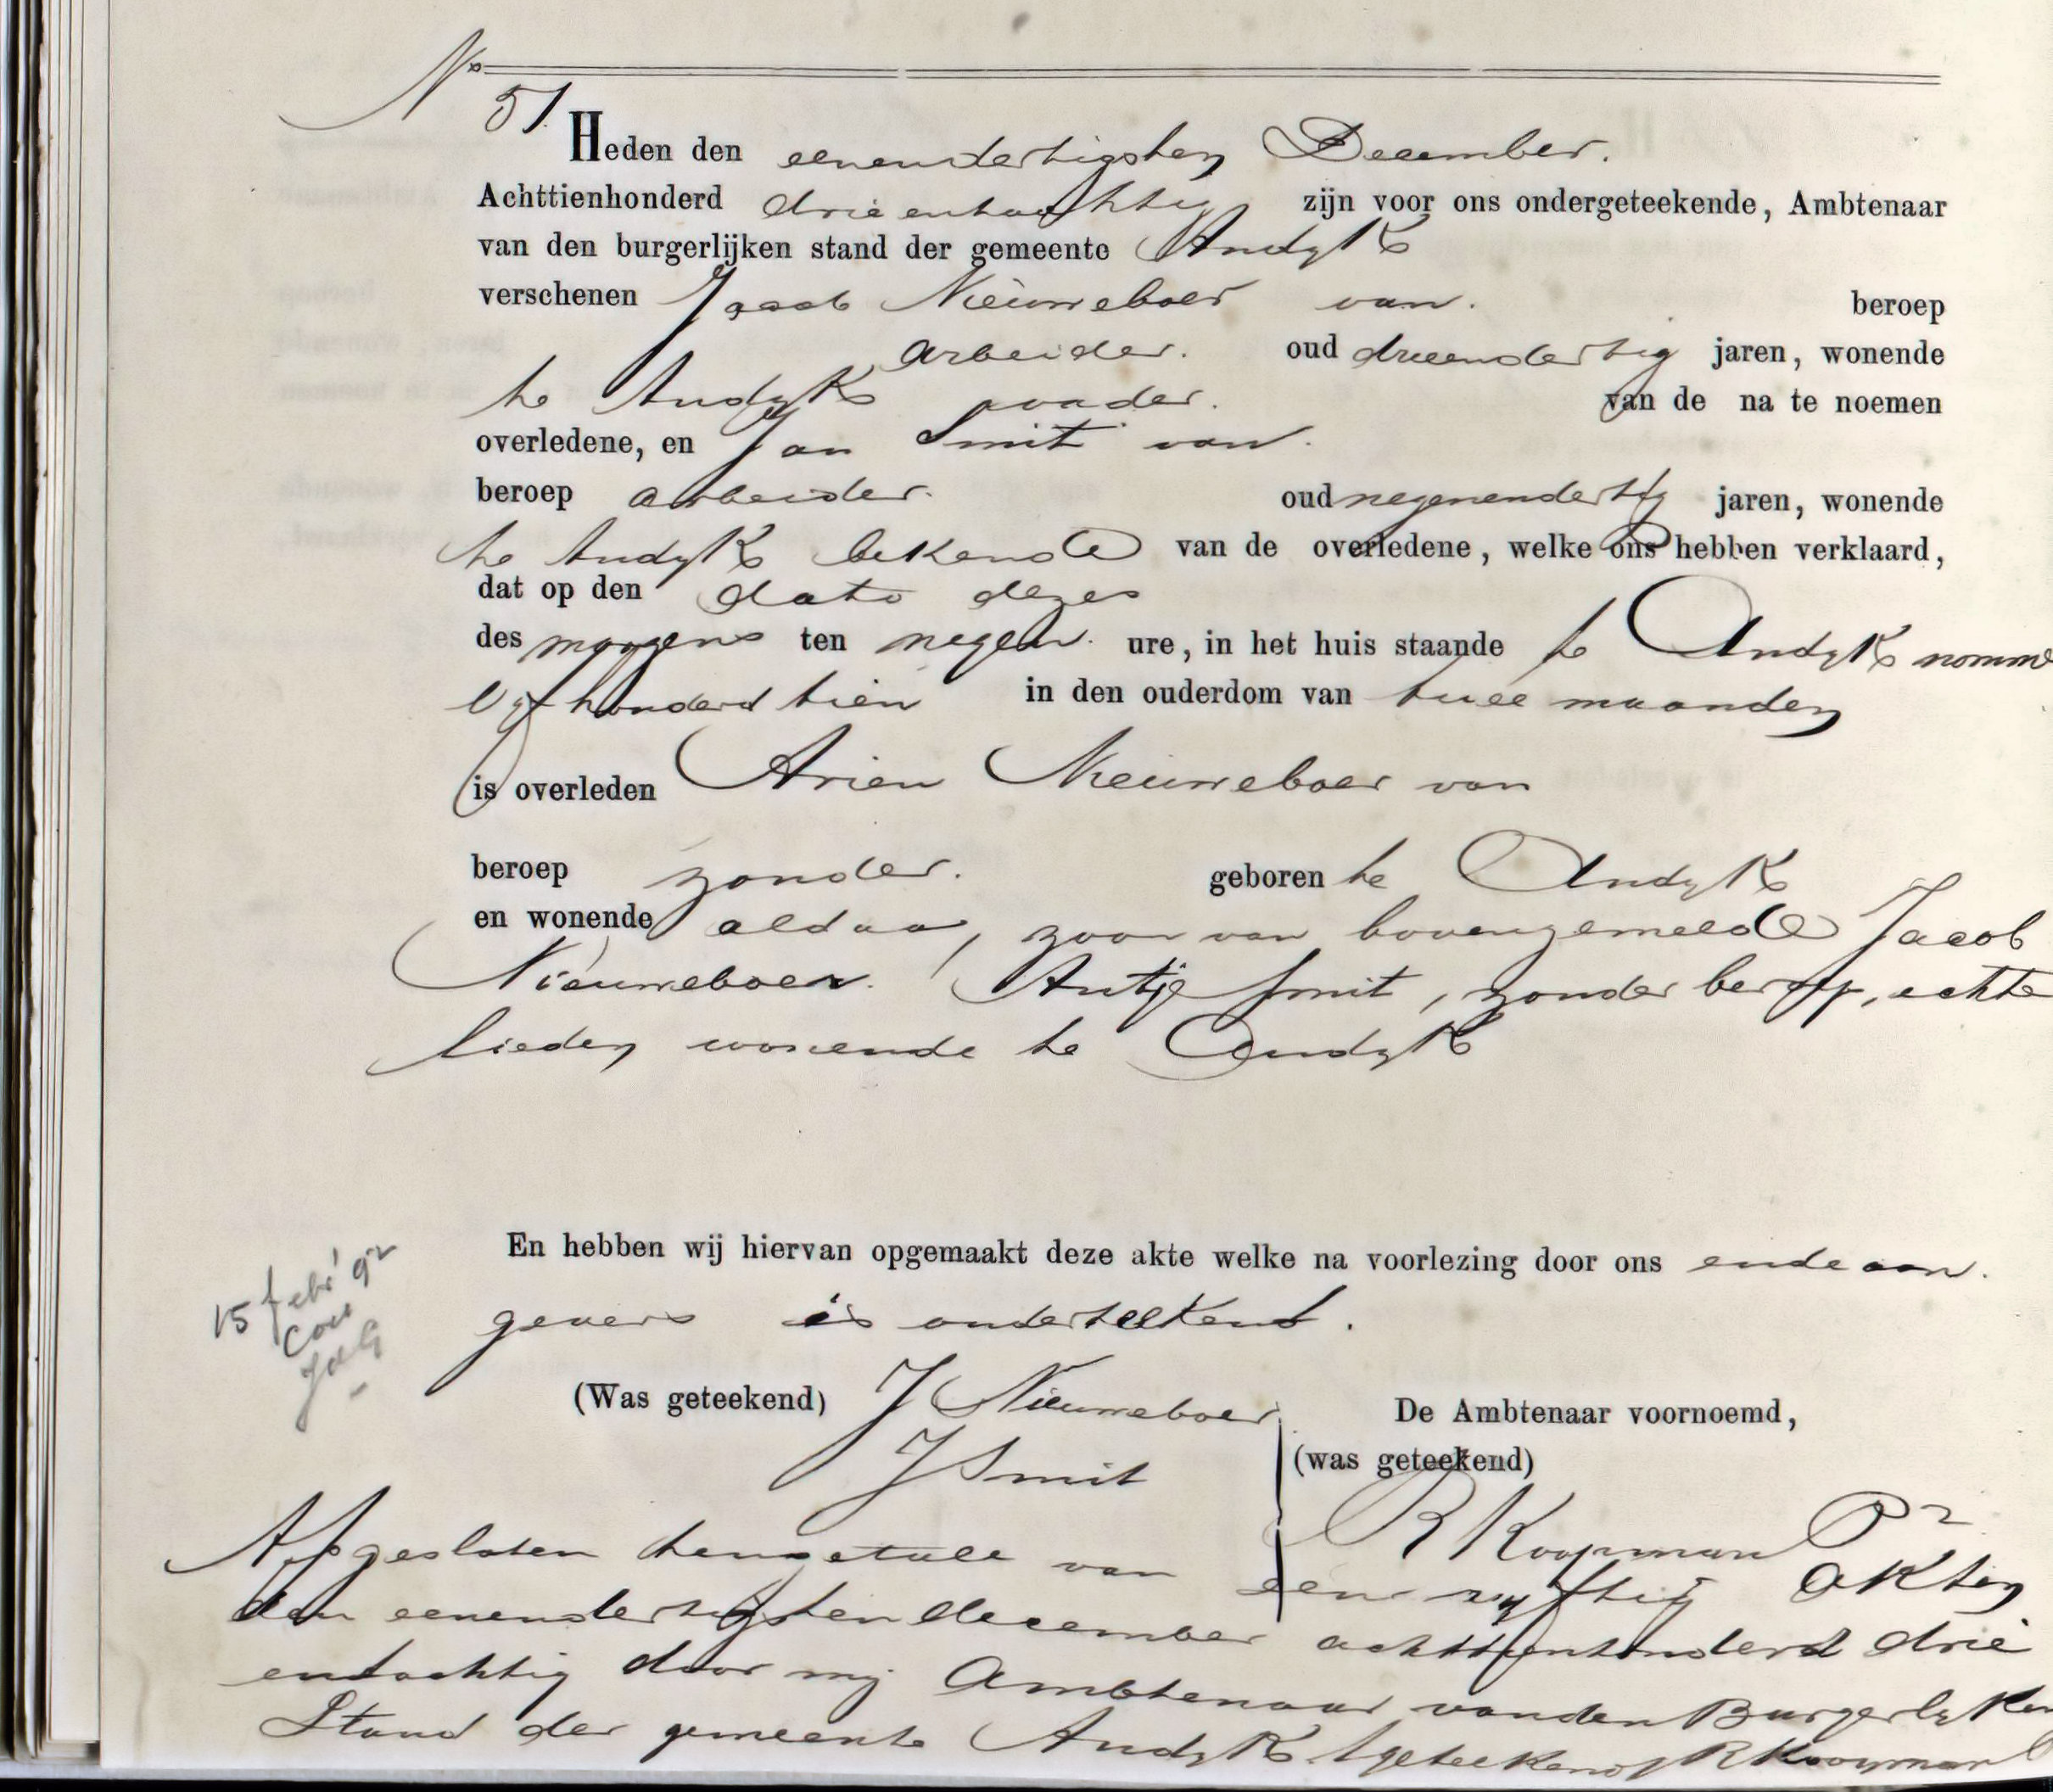 No
51. Heden den eenendertigsten December.
Achttienhonderd drieentachtig zijn voor ons ondergeteekende, Ambtenaar
van den burgerlijken stand der gemeente Andyk
verschenen Jacob Nieuweboer van. beroep
arbeider. oud drieendertig jaren, wonende
te Andyk vader. van de na te noemen
overledene, en Jan Smit van.
beroep arbeider. oud negenendertig jaren, wonende
te Andyk bekende van de overledene, welke ons hebben verklaard,
dat op den dato dezes
des morgens ten negen. ure, in het huis staande te Andyk nomme
vyfhonderd tien in den ouderdom van twee maanden
is overleden Arien Nieuweboer van
beroep zonder. geboren te Andyk
en wonende aldaar, zoon van bovengemelde Jacob
Nieuweboer. Antje Smit, zonder beroep, echte
lieden wonende te Andyk
En hebben wij hiervan opgemaakt deze akte welke na voorlezing door ons ende aan.
gevers is onderteekend.
15 febr '92
(Was geteekend) J Nieuweboer De Ambtenaar voornoemd,
J Smit (was geteekend)
R Kooyman Pz
Afgesloten ten getale van een vyftig akten
den eenendertigsten december achttienhonderd drie
entachtig door my Ambtenaar van den Burgerlyken
Stand der gemeente Andyk. (geteekend) R Kooyman